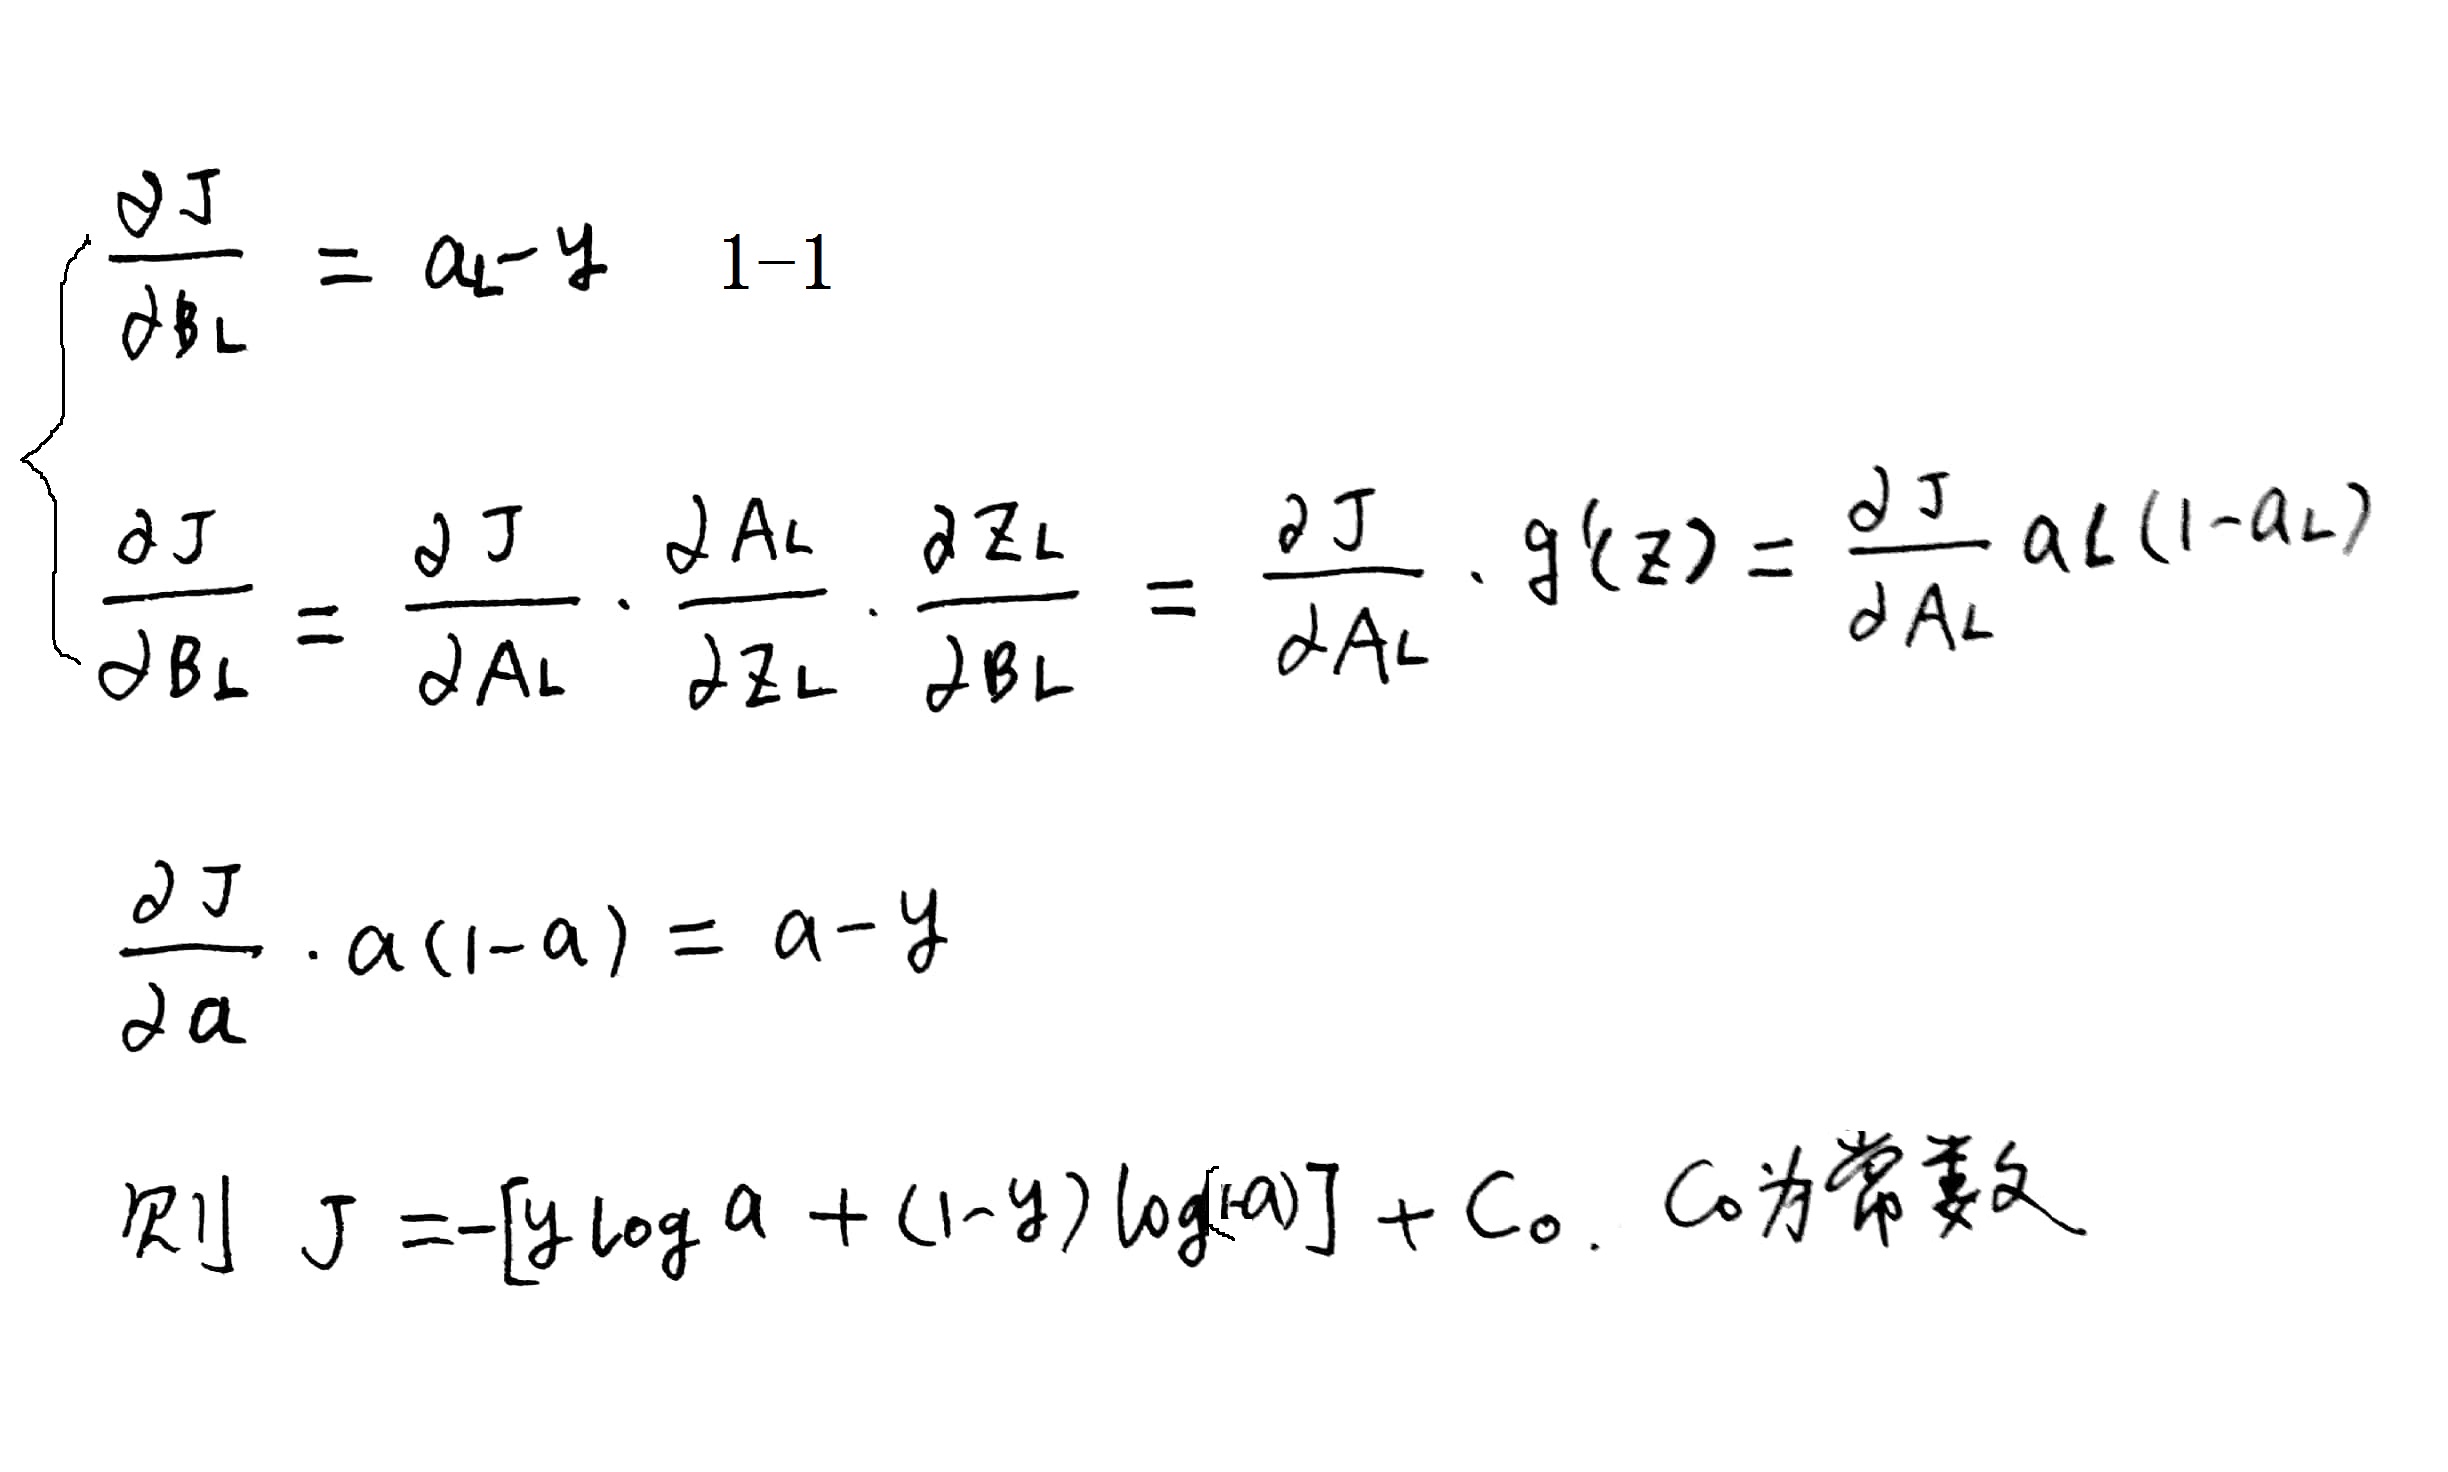 ∂J/∂B_L = a_L - y 1-1
∂J/∂B_L = ∂J/∂A_L · ∂A_L/∂Z_L · ∂Z_L/∂B_L = ∂J/∂A_L · g'(z) = ∂J/∂A_L a_L(1-a_L)
∂J/∂a · a(1-a) = a-y
则 J = -[y log a + (1-y) log(1-a)] + C₀. C₀为常数